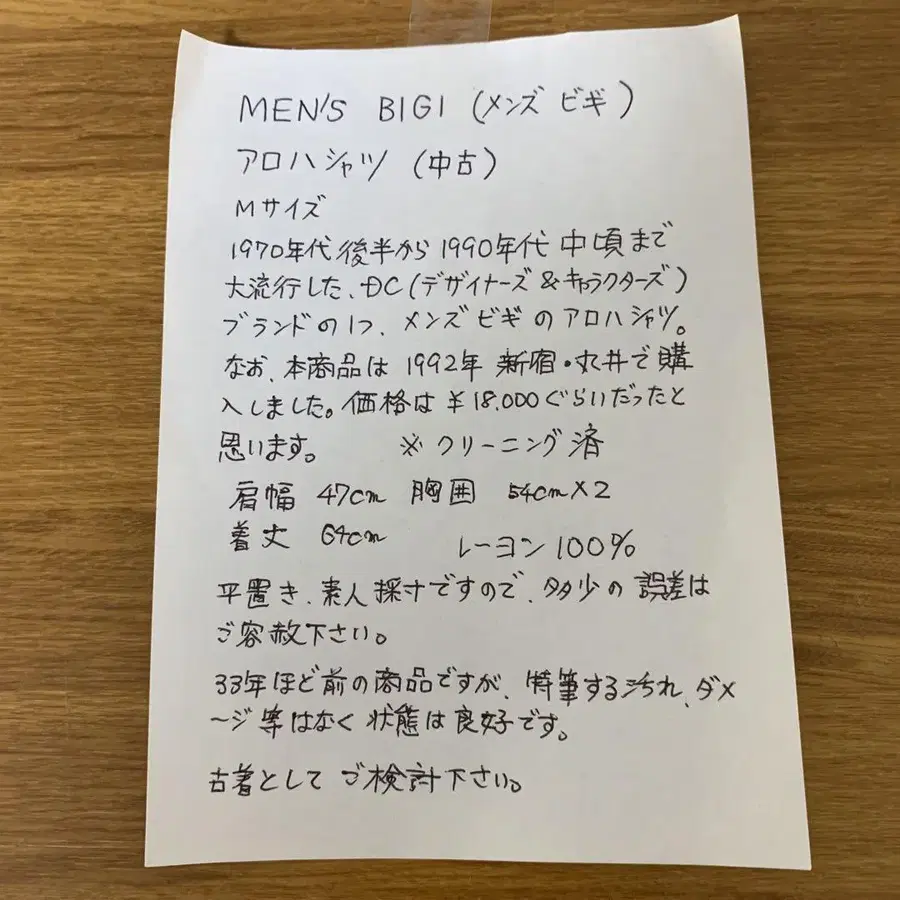 MEN'S BIGI (メンズ ビギ)
アロハシャツ (中古)
Mサイズ
1970年代後半から1990年代中頃まで
大流行した、DC(デザイナーズ&キャラクターズ)
ブランドの1つ、メンズビギのアロハシャツ。
なお、本商品は1992年新宿・丸井で購
入しました。価格は¥18.000ぐらいだったと
思います。 ※クリーニング済
肩幅 47cm 胸囲 54cm×2
着丈 64cm レーヨン100%
平置き、素人採寸ですので、多少の誤差は
ご容赦下さい。
33年ほど前の商品ですが、特筆する汚れ、ダメ
ージ等はなく状態は良好です。
古着としてご検討下さい。